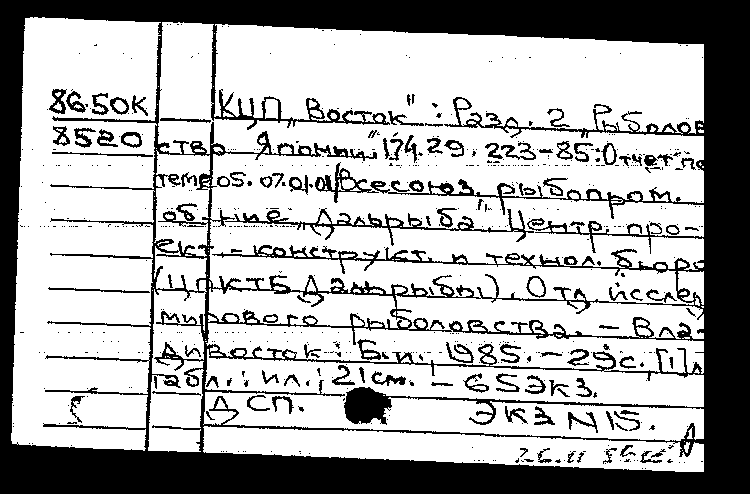 86.50К КЦП „Восток“: Разд. 2 „Рыболов
8520 ство Японии“ 174.29.223-85: Отчет по
теме 05.07.01.01/Всесоюз. рыбопром.
об-ние „Дальрыба“, Центр. про-
ект.-конструкт. и технол. бюро
(ЦПКТБ Дальрыбы). Отд. исслед
мирового рыболовства. - Вла-
дивосток: Б.и., 1985. - 29с., [1] л
табл.: ил.; 21 см. - 65 экз.
ДСП. ЭКЗ N 15.
26.11